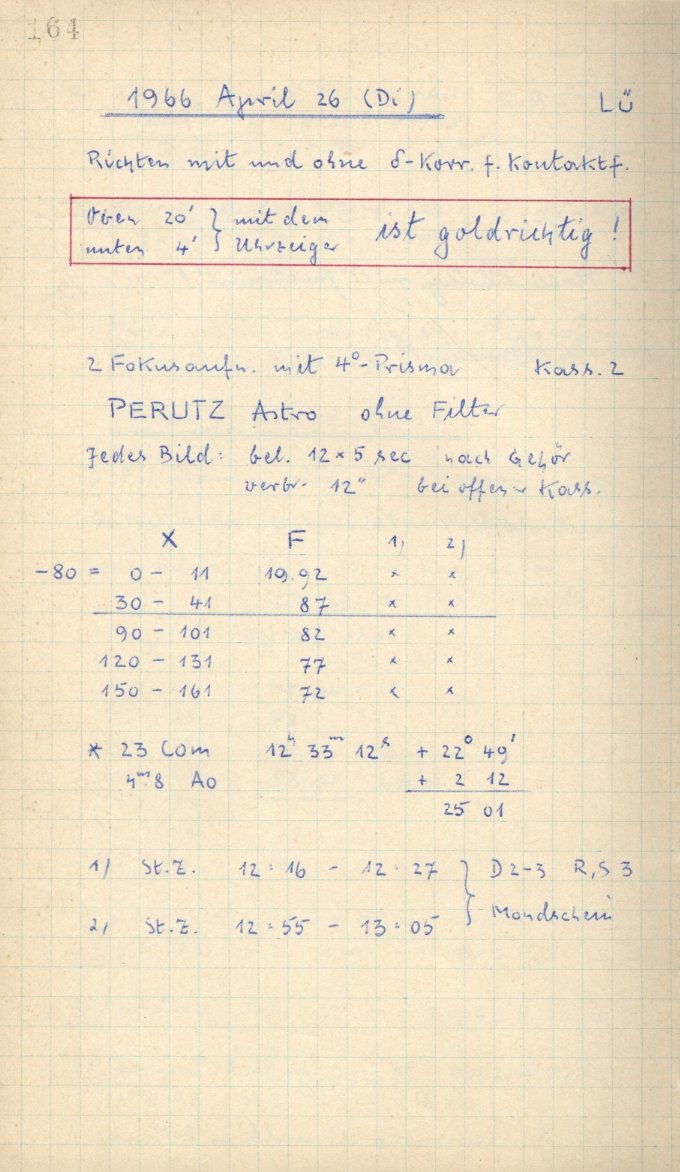 164
1966 April 26 (Di) LÜ
Richten mit und ohne δ-Korr. f. Kontaktf.
Oben 20' } mit dem ist goldrichtig !
unten 4' } Uhrzeiger
2 Fokusaufn. mit 4°-Prisma Kass. 2
PERUTZ Astro ohne Filter
Jedes Bild: bel. 12 × 5 sec nach Gehör
verbr. 12" bei offener Kass.
X F 1) 2)
-80 = 0 - 11 19.92 × ×
30 - 41 87 × ×
90 - 101 82 × ×
120 - 131 77 × ×
150 - 161 72 × ×
* 23 Com 12ʰ 33ᵐ 12ˢ + 22° 49'
4ᵐ.8 A0 + 2 12
25 01
1) St.Z. 12:16 - 12:27 } D 2-3 R,S 3
2) St.Z. 12:55 - 13:05 } Mondschein